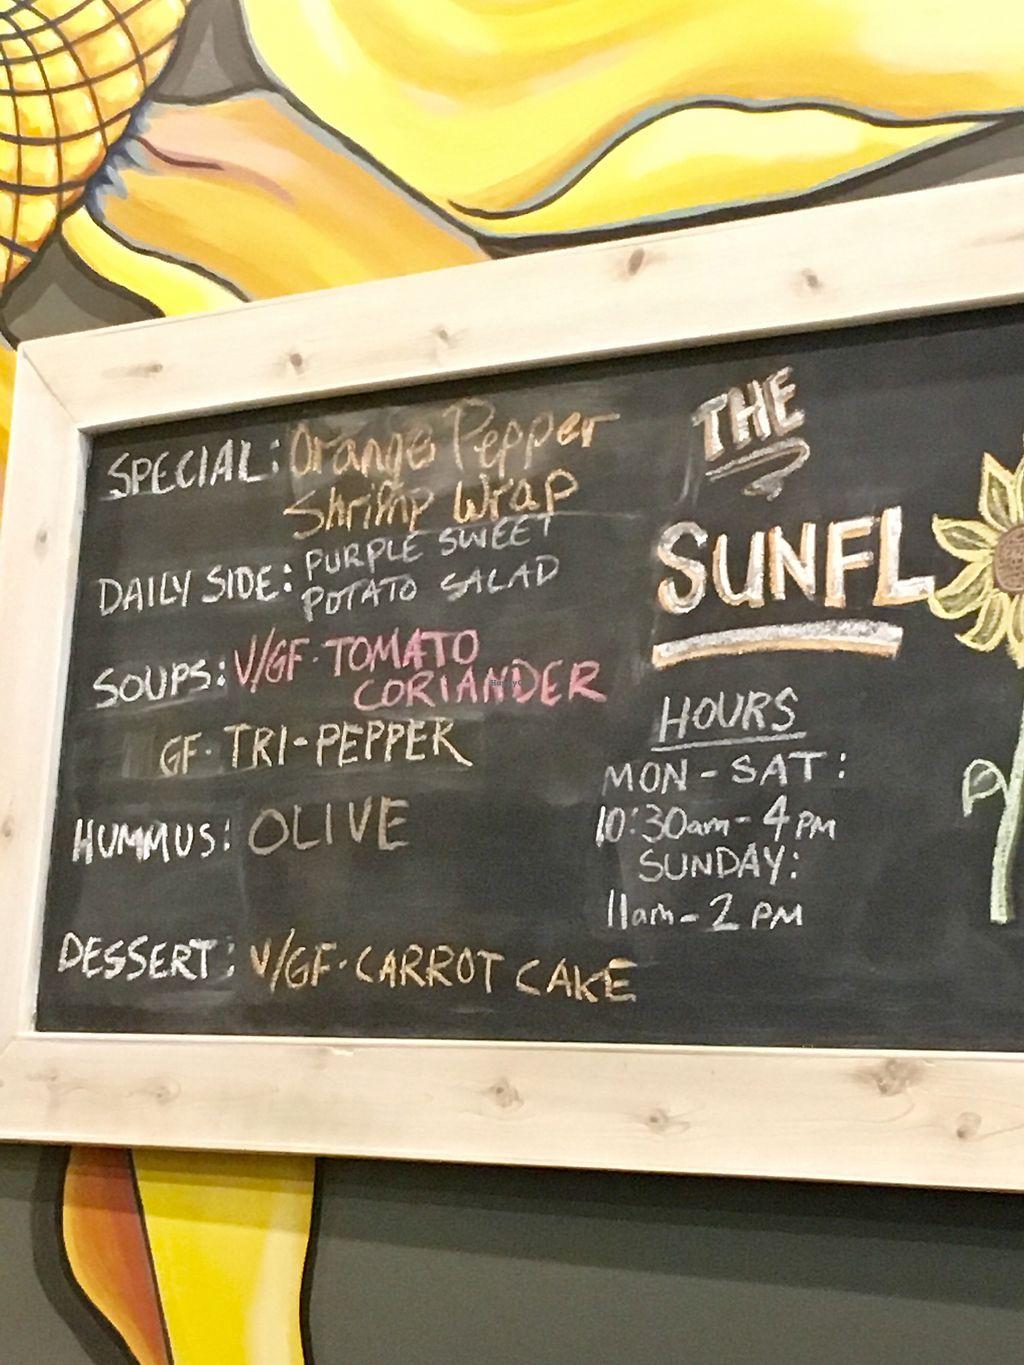 SPECIAL: Orange Pepper
Shrimp Wrap
DAILY SIDE: PURPLE SWEET
POTATO SALAD
SOUPS: V/GF · TOMATO
CORIANDER
GF · TRI-PEPPER
HUMMUS: OLIVE
DESSERT: V/GF · CARROT CAKE
THE
SUNFL
HOURS
MON - SAT:
10:30am - 4 PM
SUNDAY:
11am - 2 PM